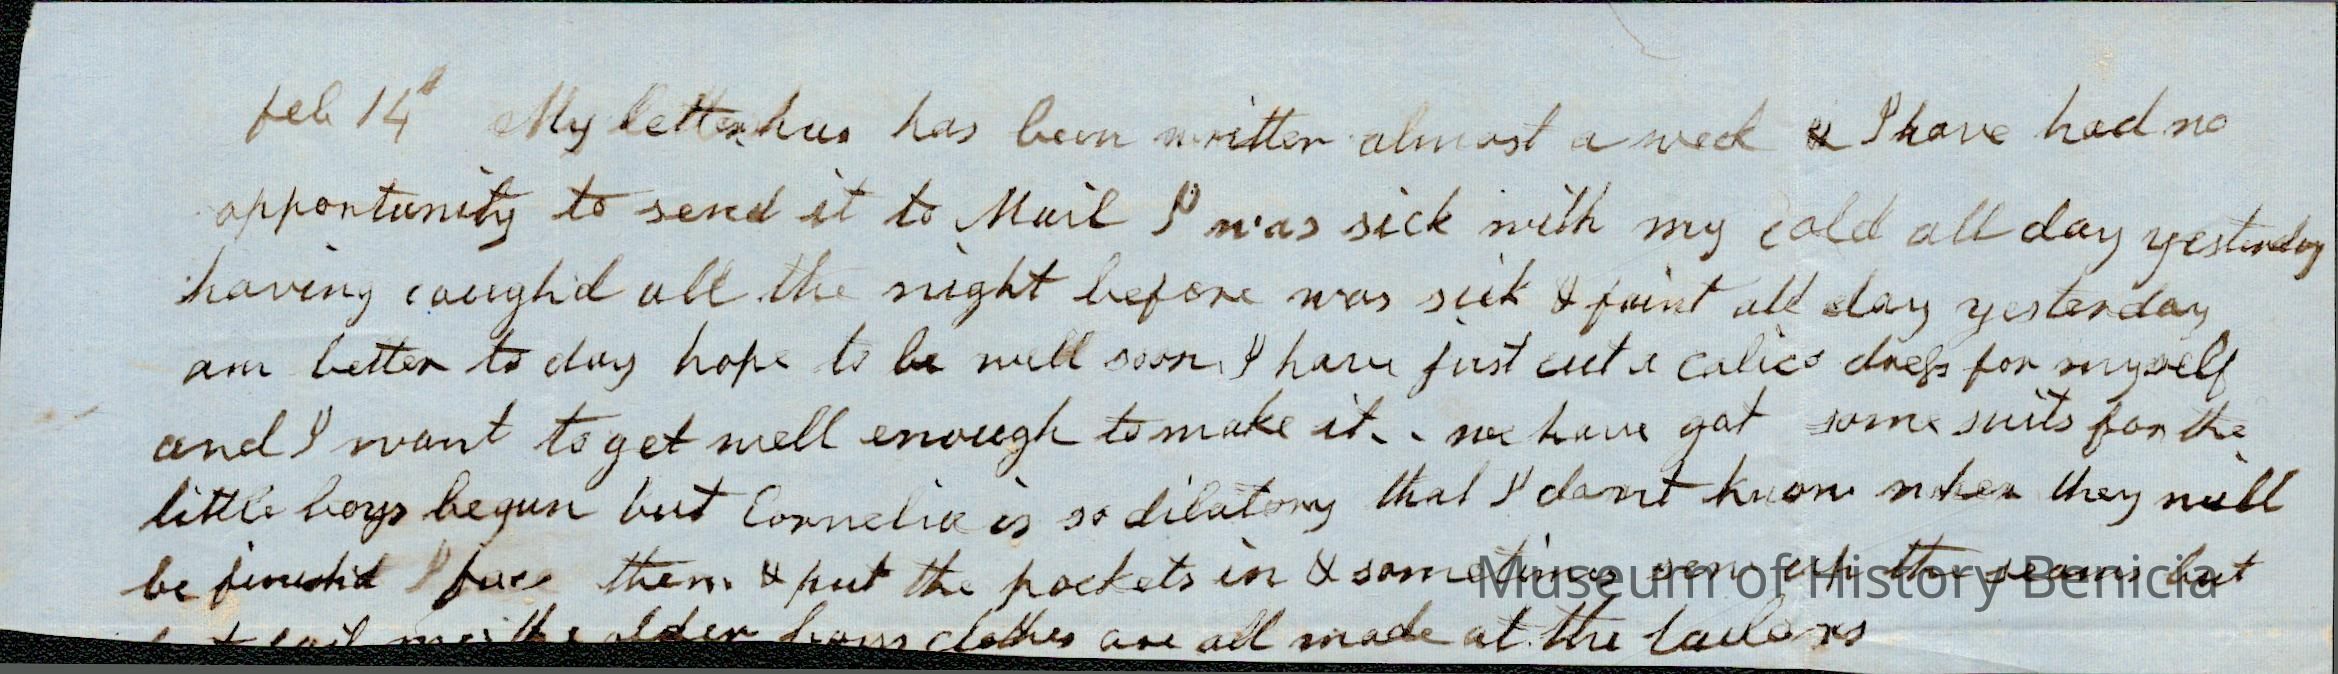 feb 14th My letter has has been written almost a week & I have had no
opportunity to send it to Mail I was sick with my cold all day yesterday
having cough'd all the night before was sick & faint all day yesterday
am better to day hope to be well soon I have just cut a calico dress for myself
and I want to get well enough to make it.. we have got some suits for the
little boys begun but Cornelia is so dilatory that I don't know when they will
be finish'd I face them & put the pockets in & sometimes sew up the seams but
the older boys clothes are all made at the tailors
Museum of History Benicia